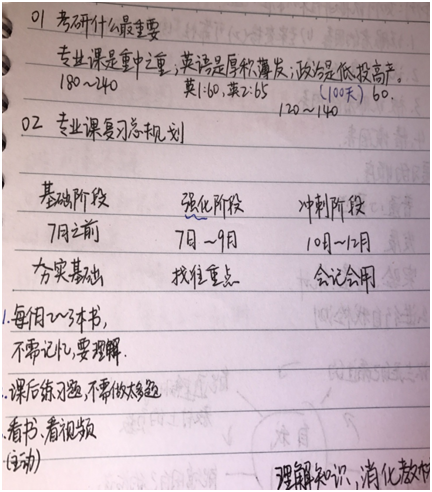 01 考研什么最重要
专业课是重中之重；英语是厚积薄发；政治是低投高产。
180~240 英1:60，英2:65 (100天) 60.
120~140
02 专业课复习总规划
基础阶段 强化阶段 冲刺阶段
7月之前 7月~9月 10月~12月
夯实基础 找住重点 会记会用
1.每个月2~3本书，
不需记忆，要理解.
.课后练习题，不需做太多题
.看书、看视频
(主动)
理解知识，消化教材